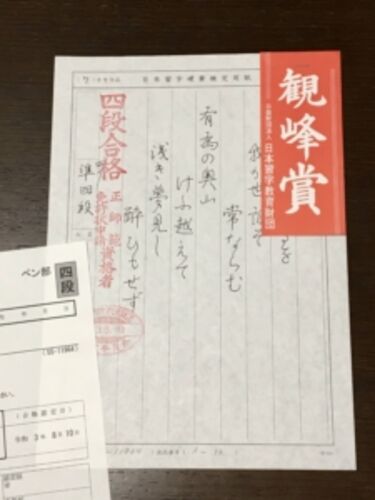 日本習字硬筆検定用紙
観峰賞
公益財団法人 日本習字教育財団
我が世誰ぞ
常ならむ
有為の奥山
けふ越えて
浅き夢見し
酔ひもせず
四段合格
正師範資格者
免許状申請
準四段
ペン部 四段
(合格認定日)
令和 3年 8月 10日